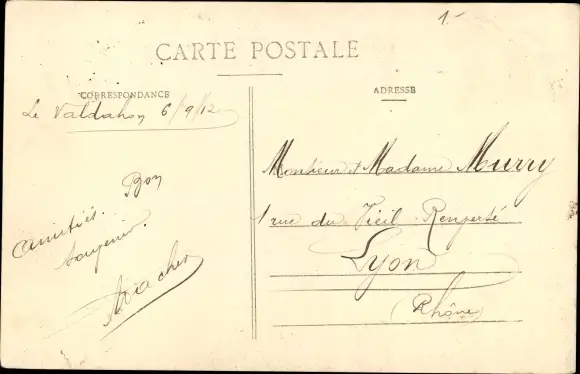 1-
CARTE POSTALE
CORRESPONDANCE
ADRESSE
Le Valdahon 6/9/12
Bon
amitiés.
souvenir.
Monsieur et Madame Murry
1 rue du Vieil Renversé
Lyon
(Rhône)